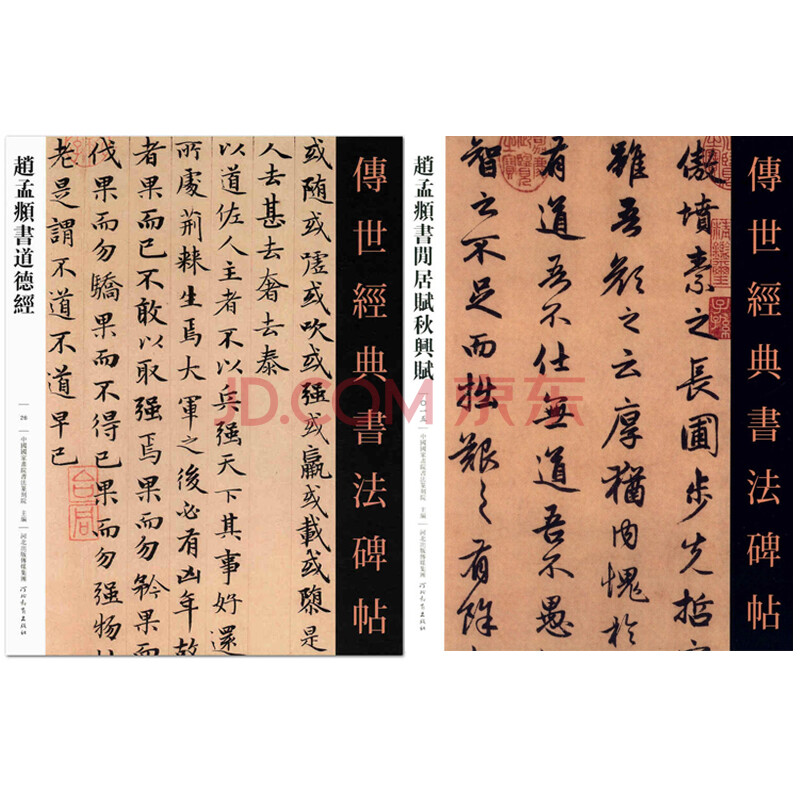 趙孟頫書道德經
中國國家畫院書法篆刻院 主編
河北出版傳媒集團
河北教育出版社
傳世經典書法碑帖
或随或嘘或吹或强或羸或載或隳是
人去甚去奢去泰
以道佐人主者不以兵强天下其事好還
所處荆棘生焉大軍之後必有凶年故
者果而已不敢以取强焉果而勿矜果而
伐果而勿驕果而不得已果而勿强物
老是謂不道不道早已
趙孟頫書閒居賦秋興賦
二〇一五
中國國家畫院書法篆刻院 主編
河北出版傳媒集團
河北教育出版社
傳世經典書法碑帖
傲墳素之長圃步先哲
雖吾顏之云厚猶内愧於
有道吾不仕無道吾不愚
智之不足而拙艱之有餘
JD.COM 京东